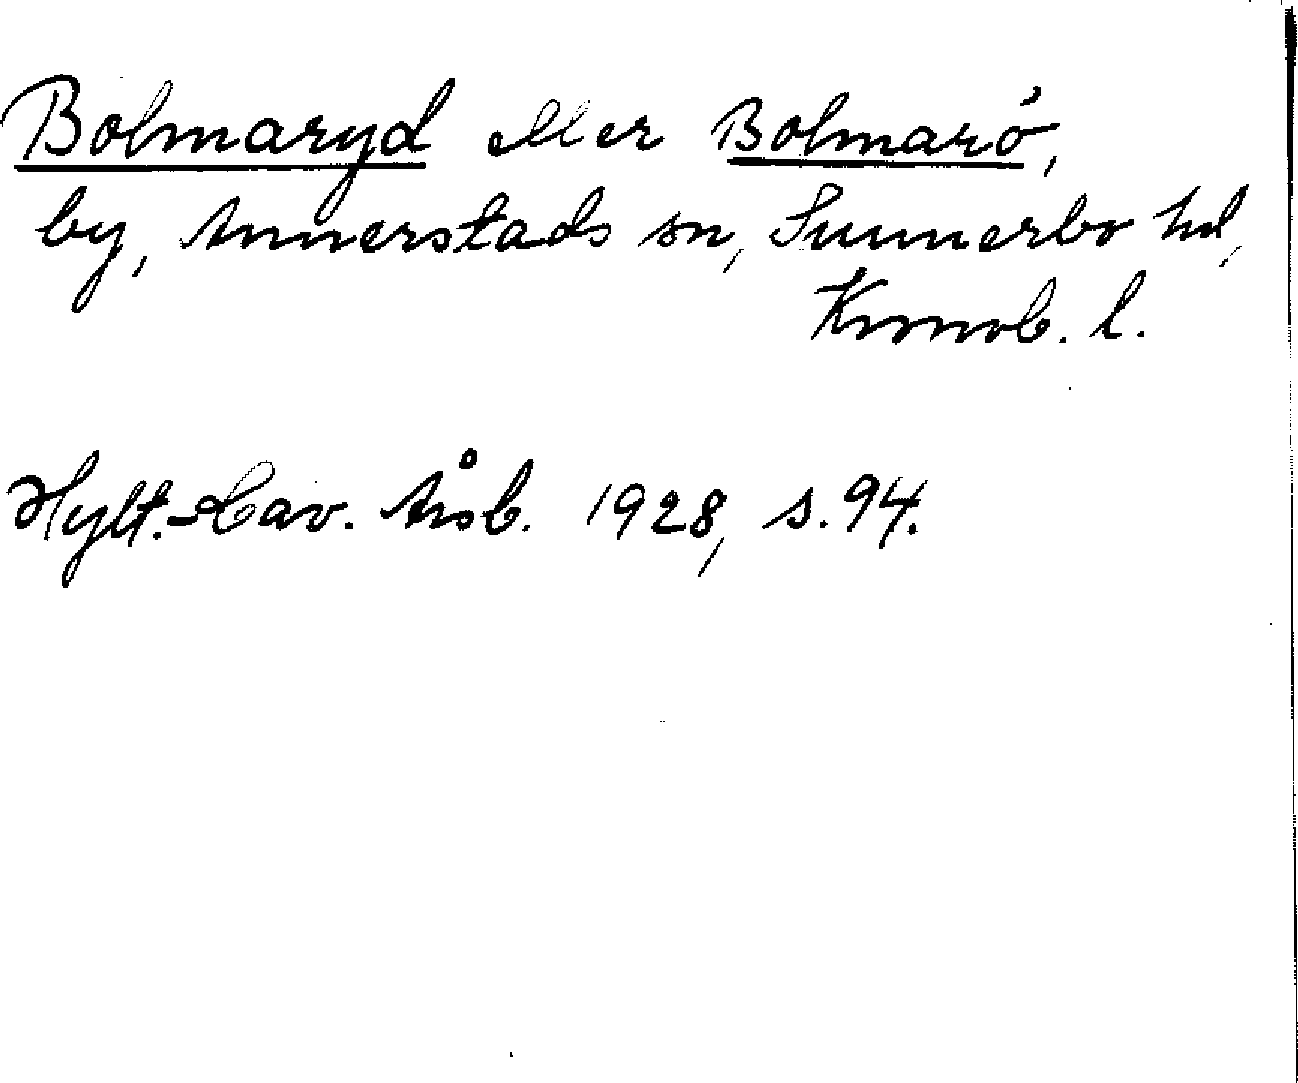 Bolmaryd eller Bolmarö,
by, Annerstads sn, Sunnerbo hd,
Kronob. l.
Hylt.-Cav. Årsb. 1928, s. 94.